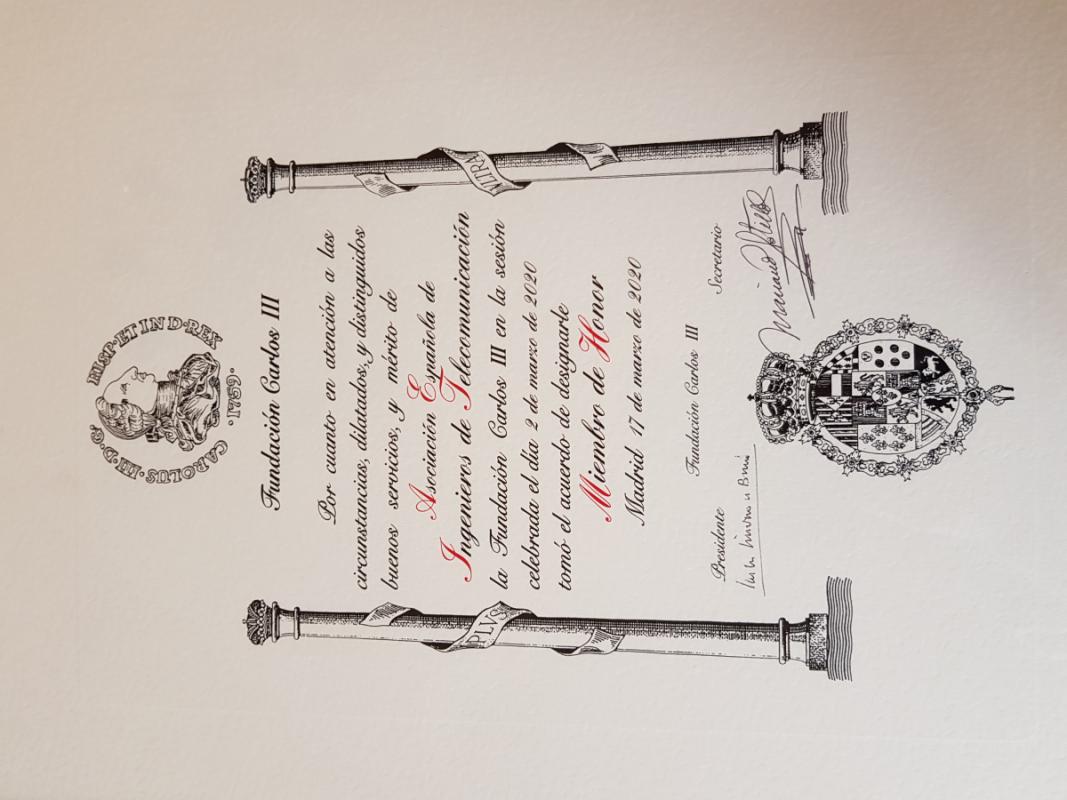 CAROLUS·III·D·G· HISP·ET IND·REX
·1759·
Fundación Carlos III
Por cuanto en atención a las
circunstancias, dilatados, y distinguidos
buenos servicios, y mérito de
Asociación Española de
Ingenieros de Telecomunicación
la Fundación Carlos III en la sesión
celebrada el día 2 de marzo de 2020
tomó el acuerdo de designarle
Miembro de Honor
Madrid 17 de marzo de 2020
PLVS
VLTRA
Presidente
Fundación Carlos III
Secretario